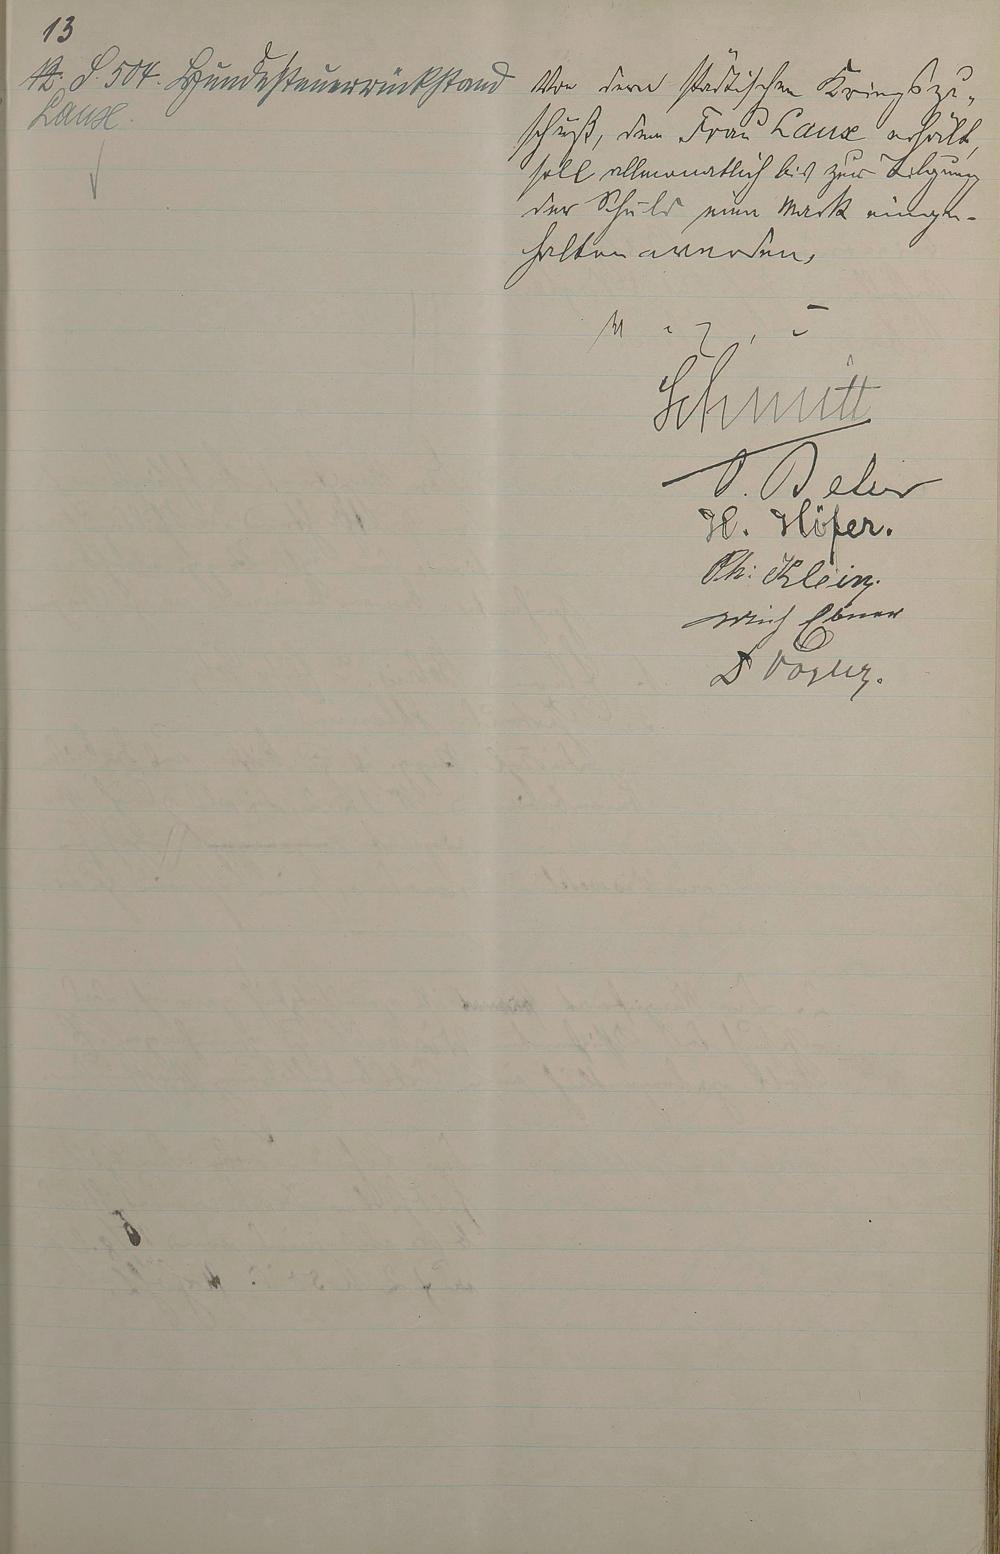 13
St. S. 504. Hundesteuerrückstand
Laux.
Von dem städtischen Kriegszu-
schuß, den Frau Laux erhält,
soll allmonatlich bis zur Tilgung
der Schuld eine Mark einge-
halten werden.
Schmitt
H. Höfer.
Ph: Klein.
Ebner